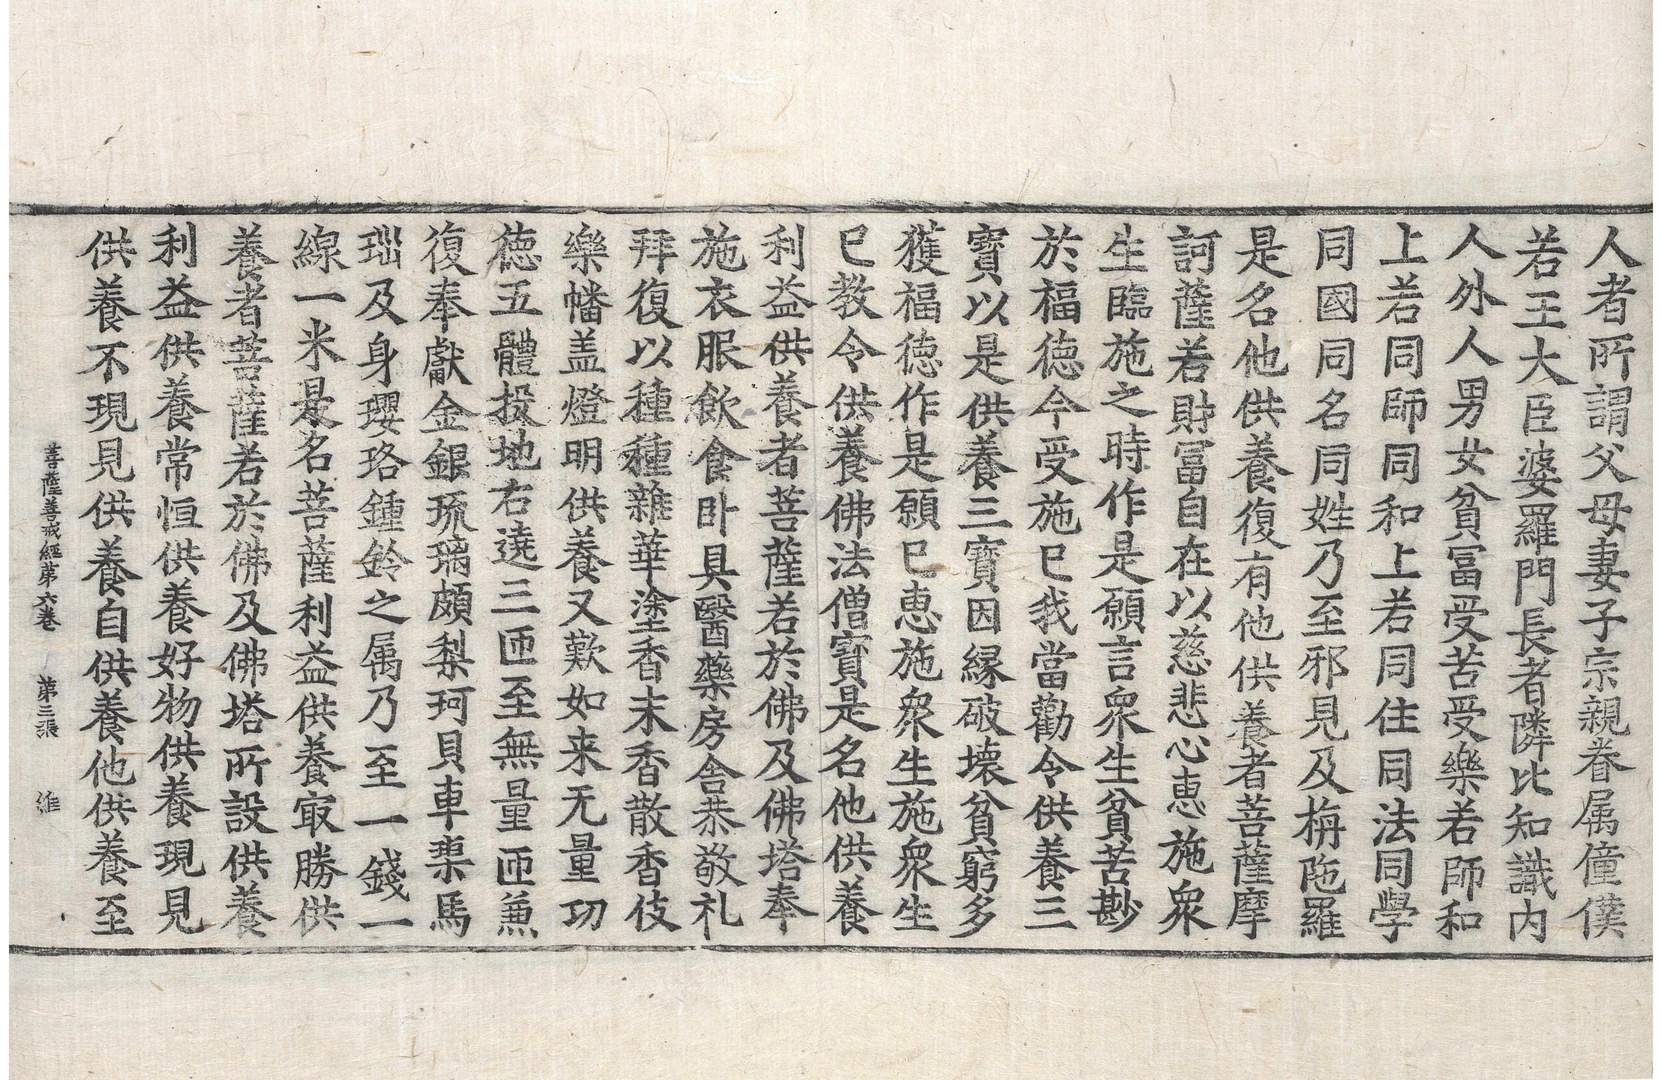 人者所謂父母妻子宗親眷属僮僕
若王大臣婆羅門長者隣比知識内
人外人男女貧冨受苦受樂若師和
上若同師同和上若同住同法同學
同國同名同姓乃至邪見及栴陁羅
是名他供養復有他供養者菩薩摩
訶薩若財冨自在以慈悲心恵施衆
生臨施之時作是願言衆生貧苦尠
於福徳今受施已我當勸令供養三
寶以是供養三寶因縁破壞貧窮多
獲福徳作是願已恵施衆生施衆生
已教令供養佛法僧寶是名他供養
利益供養者菩薩若於佛及佛塔奉
施衣服飲食卧具醫藥房舎恭敬礼
拜復以種種雜華塗香末香散香伎
樂幡盖燈明供養又歎如来无量功
徳五體投地右遶三匝至無量匝兼
復奉獻金銀琉璃頗梨珂貝車𤦲馬
瑙及身瓔珞鍾鈴之属乃至一錢一
線一米是名菩薩利益供養冣勝供
養者菩薩若於佛及佛塔所設供養
利益供養常恒供養好物供養現見
供養不現見供養自供養他供養至
菩薩善戒經第六卷　第三張　維